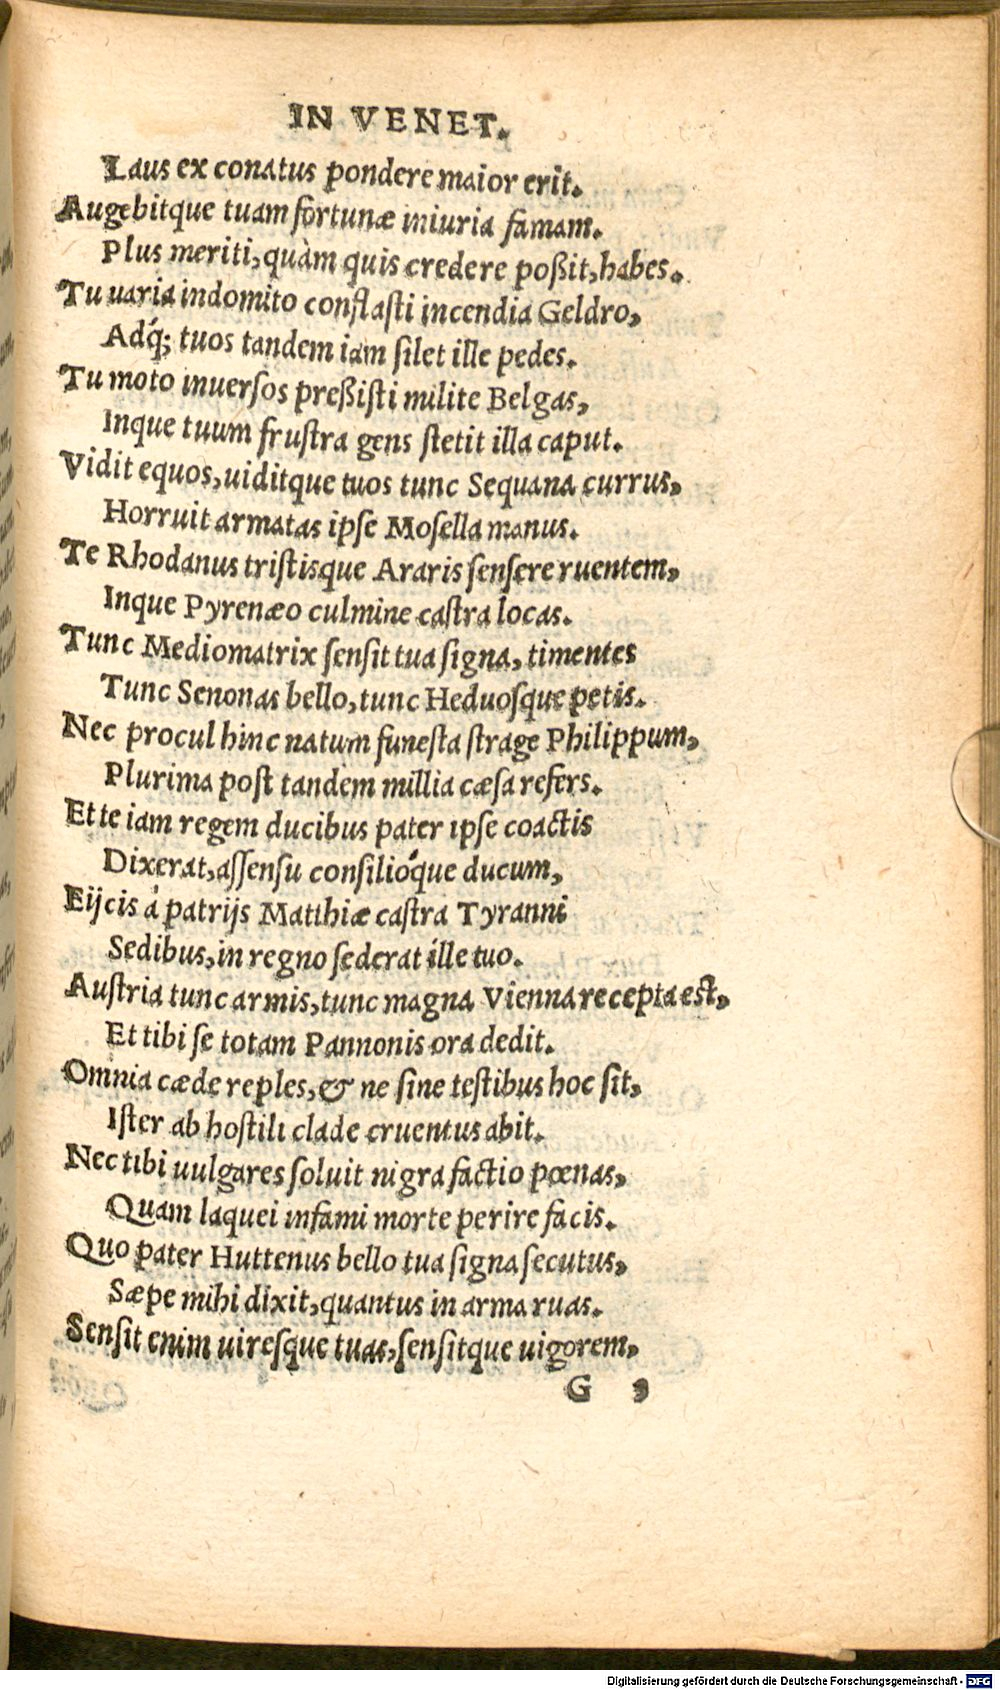 IN VENET.
Laus ex conatus pondere maior erit.
Augebitque tuam fortunæ iniuria famam.
Plus meriti, quàm quis credere poßit, habes.
Tu uaria indomito conflasti incendia Geldro,
Adq́; tuos tandem iam silet ille pedes.
Tu moto inuersos preßisti milite Belgas,
Inque tuum frustra gens stetit illa caput.
Vidit equos, uiditque tuos tunc Sequana currus,
Horruit armatas ipse Mosella manus.
Te Rhodanus tristisque Araris sensere ruentem,
Inque Pyrenæo culmine castra locas.
Tunc Mediomatrix sensit tua signa, timentes
Tunc Senonas bello, tunc Heduosque petis.
Nec procul hinc natum funesta strage Philippum,
Plurima post tandem millia cæsa refers.
Et te iam regem ducibus pater ipse coactis
Dixerat, assensu consilióque ducum,
Eijcis à patrijs Matthiæ castra Tyranni
Sedibus, in regno sederat ille tuo.
Austria tunc armis, tunc magna Vienna recepta est,
Et tibi se totam Pannonis ora dedit.
Omnia cæde reples, & ne sine testibus hoc sit,
Ister ab hostili clade cruentus abit.
Nec tibi uulgares soluit nigra factio pœnas,
Quam laquei infami morte perire facis.
Quo pater Huttenus bello tua signa secutus,
Sæpe mihi dixit, quantus in arma ruas.
Sensit enim uiresque tuas, sensitque uigorem,
G ,
Digitalisierung gefördert durch die Deutsche Forschungsgemeinschaft - DFG